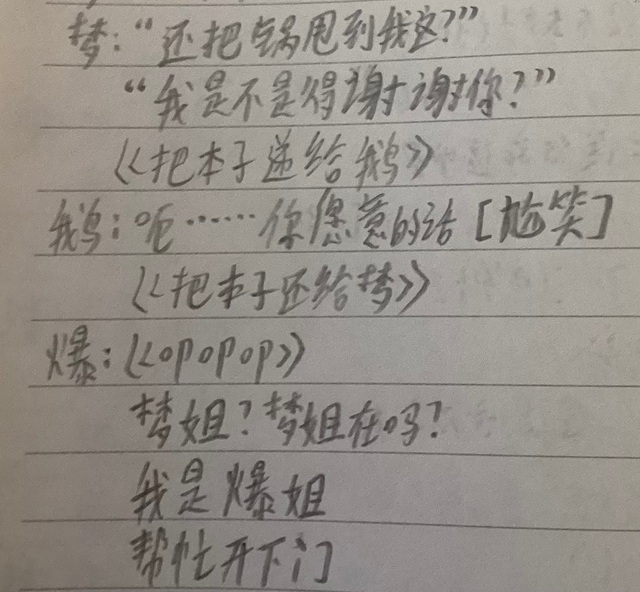 梦：“还把锅甩到我这？”
“我是不是得谢谢你？”
《《把本子递给鹅》》
鹅：呃……你愿意的话［尬笑］
《《把本子还给梦》》
爆：《《opopop》》
梦姐？梦姐在吗？
我是爆姐
帮忙开下门